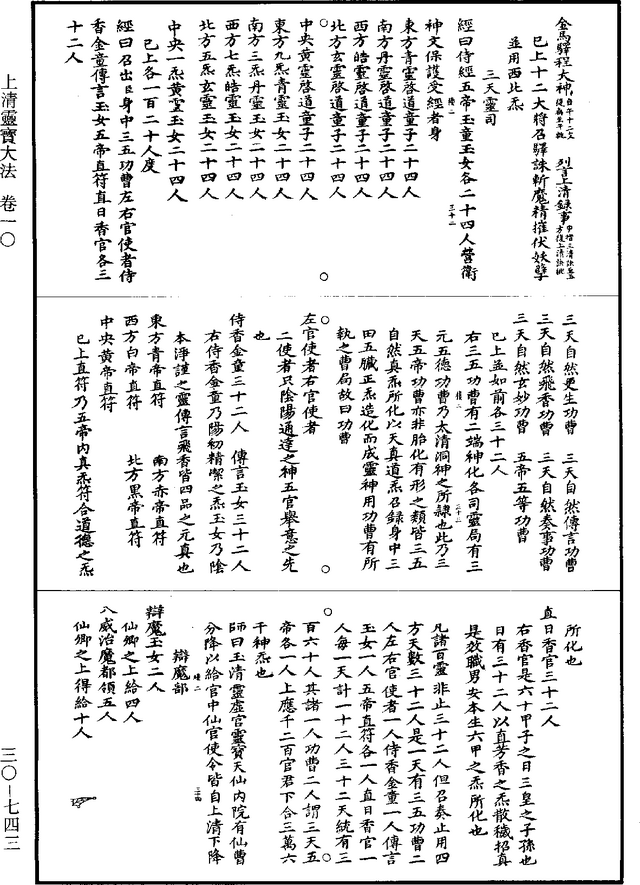 金馬驛程大神
列言上清錄事
已上十二大將召驛誅斬魔精摧伏妖孽
並用西北炁
三天靈司
經曰侍經五帝玉童玉女各二十四人營衛
神文保護受經者身
東方青靈啓道童子二十四人
南方丹靈啓道童子二十四人
西方皓靈啓道童子二十四人
北方玄靈啓道童子二十四人
中央黃靈啓道童子二十四人
東方九炁青靈玉女二十四人
南方三炁丹靈玉女二十四人
西方七炁皓靈玉女二十四人
北方五炁玄靈玉女二十四人
中央一炁黃靈玉女二十四人
已上各一百二十人度
經曰召出臣身中三五功曹左右官使者侍
香金童傳言玉女五帝直符直日香官各三
十二人
三天自然更生功曹 三天自然傳言功曹
三天自然飛香功曹 三天自然奏事功曹
三天自然玄妙功曹 五帝五等功曹
已上並如前各三十二人
右三五功曹有二端神化各司靈局有三
元五德功曹乃太清洞神之所隸也此乃三
天五帝功曹亦非胎化有形之類皆三五
自然真炁所化以天真道炁召錄身中三
田五臟正炁造化而成靈神用功曹有所
執之曹局故曰功曹
左官使者右官使者
二使者只陰陽通達之神五官舉意之先
也
侍香金童三十二人 傳言玉女三十二人
右侍香金童乃陽初精潔之炁玉女乃陰
本淨謹之靈傳言飛香皆四品之元真也
東方青帝直符 南方赤帝直符
西方白帝直符 北方黑帝直符
中央黃帝直符
已上直符乃五帝內真炁符合道德之炁
所化也
直日香官三十二人
右香官是六十甲子之日三皇之子孫也
日有三十二人以真芳香之炁散穢招真
是效職男女本生六甲之炁所化也
凡諸百靈非止三十二人但召奏止用四
方天數三十二人是一天有三五功曹二
人左右官使者一人侍香金童一人傳言
玉女一人五帝直符各一人直日香官一
人每一天計一十二人三十二天統有三
百六十人其諸一人功曹二人謂三天五
帝各一人上應千二百官君下合三萬六
千神炁也
師曰玉清靈虛宮靈寶天仙內院有仙曹
分降以給官中仙官使令皆自上清下降
辯魔部
辯魔玉女二人
仙卿之上給四人
八威治魔都領五人
仙卿之上得給十人
上清靈寶大法 卷一〇
三〇—七四三